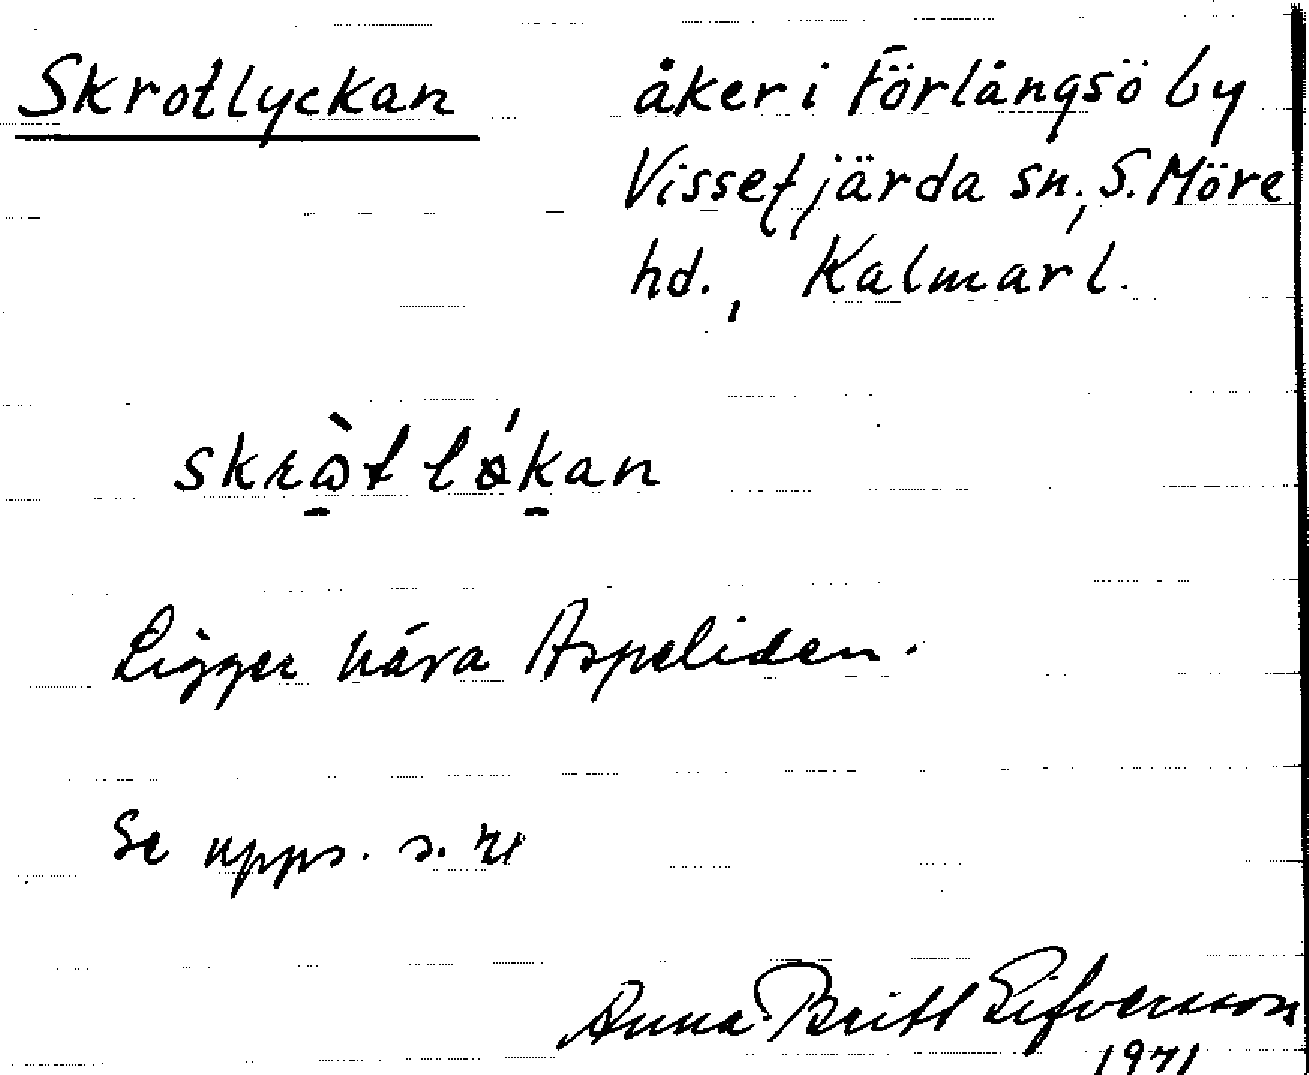 Skrotlyckan åker i Förlångsö by
Vissefjärda sn., S. Möre
hd., Kalmar l.
Ligger nära Aspeliden.
Se upps. s.
Anna Britt Sifversson
1971